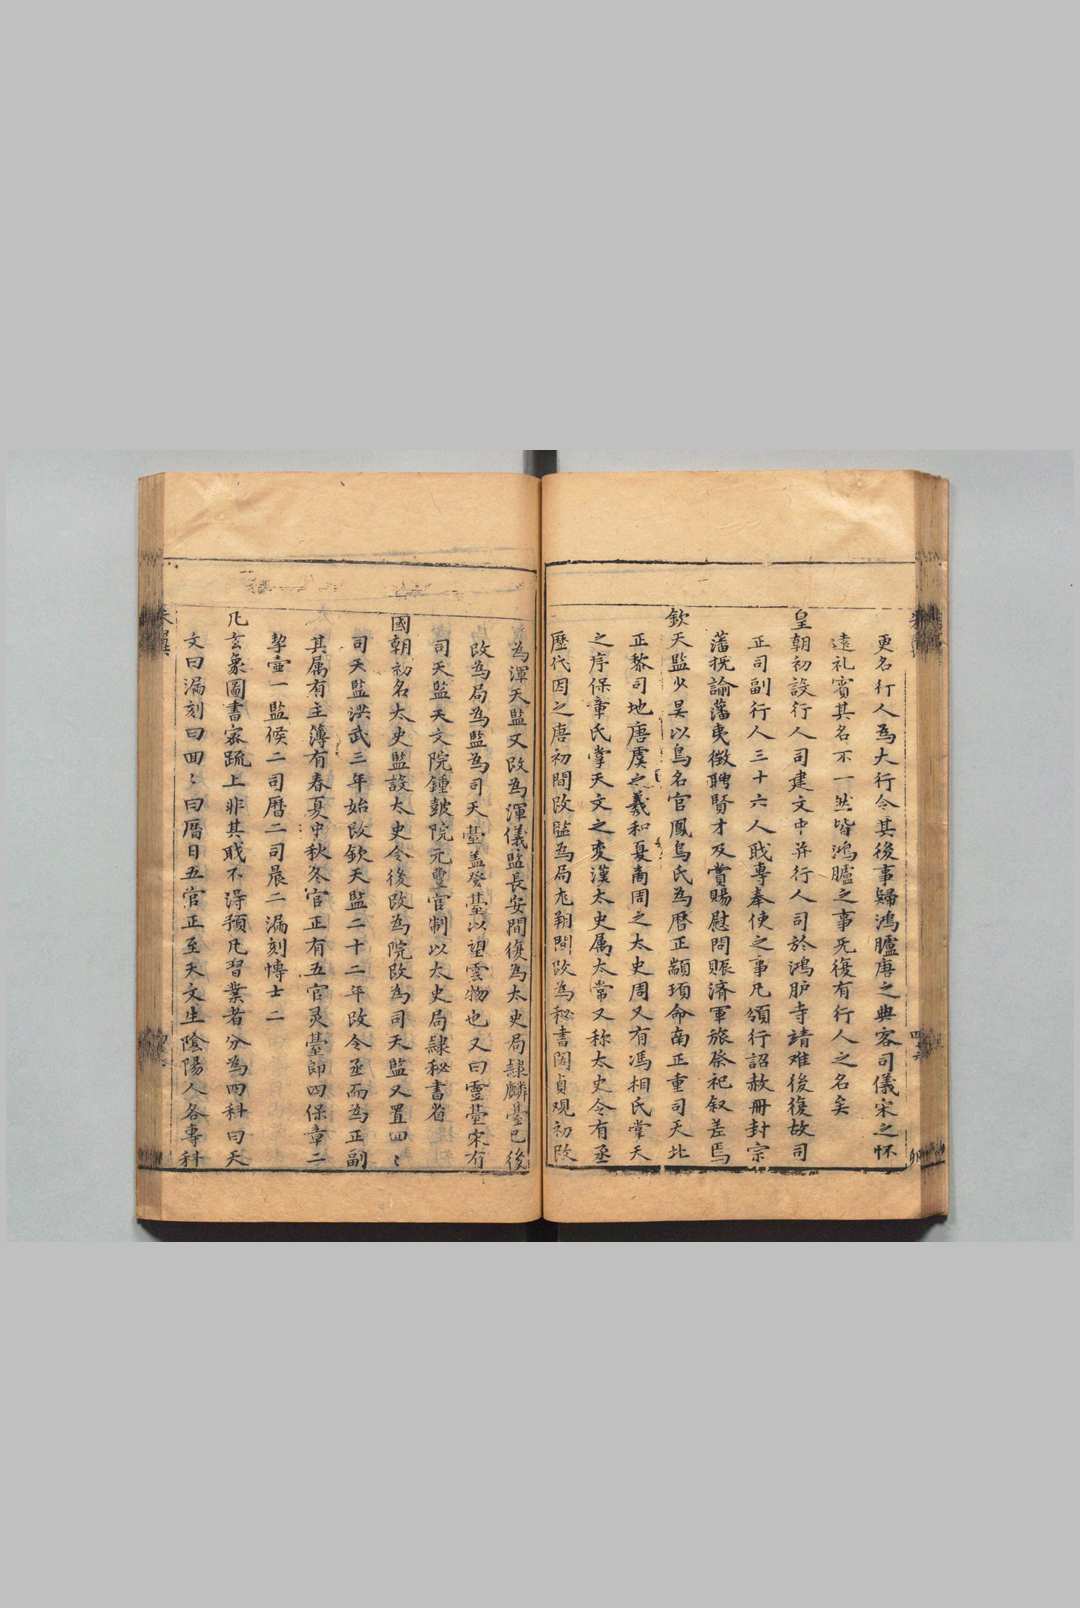 更名行人為大行令其後事歸鴻臚唐之典客司儀宋之懐
遠礼賓其名不一然皆鴻臚之事旡復有行人之名矣
皇朝初設行人司建文中并行人司於鴻胪寺靖难後復故司
正司副行人三十六人职專奉使之事凡頒行詔赦册封宗
藩抚諭藩夷徵聘賢才及賞賜慰問賑済軍旅祭祀叙差焉
欽天監少昊以鳥名官鳳鳥氏為曆正顓頊命南正重司天北
正黎司地唐虞之羲和夏啇周之太史周又有馮相氏掌天
之序保章氏掌天文之变漢太史属太常又称太史令有丞
歷代因之唐初間改監為局龙朔間改為秘書閣貞观初改
為渾天監又改為渾儀監長安間復為太史局隷麟臺已後
改為局為監為司天臺盖登臺以望雲物也又曰靈臺宋有
司天監天文院鍾皷院元豊官制以太史局隷秘書省
國朝初名太史監設太史令後改為院改為司天監又置回〻
司天監洪武三年始改欽天監二十二年改令丞而為正副
其属有主簿有春夏中秋冬官正有五官灵臺郎四保章二
挈壷一監候二司曆二司晨二漏刻博士二
凡玄象圖書寂疏上非其职不淂預凡習業者分為四科曰天
文曰漏刻曰回〻曰曆日五官正至天文生隂陽人各專科